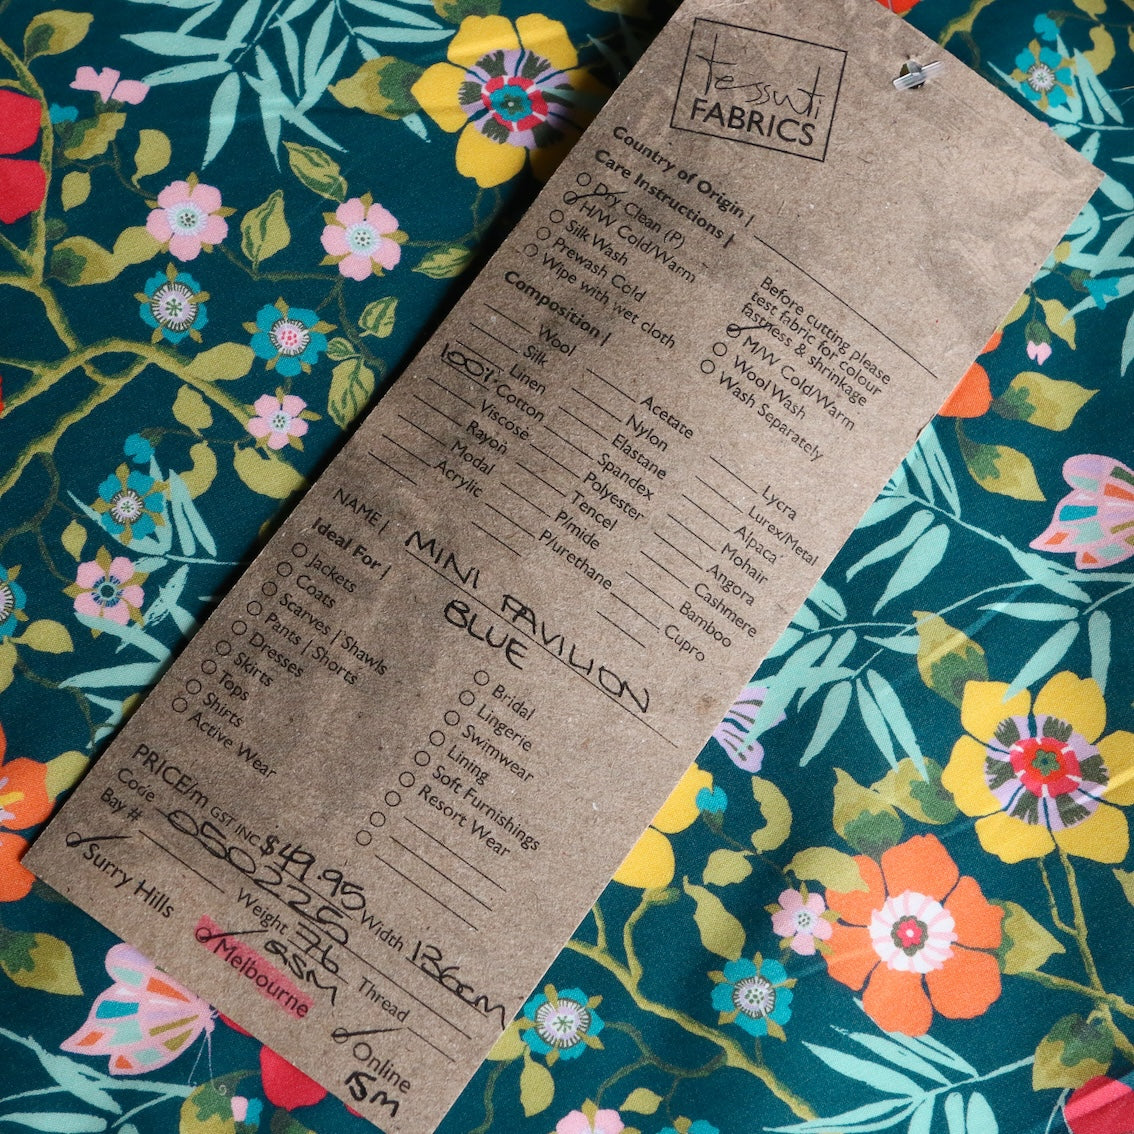 tessuti
FABRICS
Country of Origin |
Care Instructions |
Dry Clean (P)
H/W Cold/Warm
Silk Wash
Prewash Cold
Wipe with wet cloth
Before cutting please
test fabric for colour
fastness & shrinkage
M/W Cold/Warm
Wool Wash
Wash Separately
Composition |
Wool
Silk
Linen
100% Cotton
Viscose
Rayon
Modal
Acrylic
Acetate
Nylon
Elastane
Spandex
Polyester
Tencel
P/mide
P/urethane
Lycra
Lurex/Metal
Alpaca
Mohair
Angora
Cashmere
Bamboo
Cupro
NAME | MINI PAVILION
BLUE
Ideal For |
Jackets
Coats
Scarves | Shawls
Pants | Shorts
Dresses
Skirts
Tops
Shirts
Active Wear
Bridal
Lingerie
Swimwear
Lining
Soft Furnishings
Resort Wear
PRICE/m GST INC $49.95 Width 136cm
Code 050225
Weight 76 GSM Thread
Bay #
Surry Hills
Melbourne
Online
15m